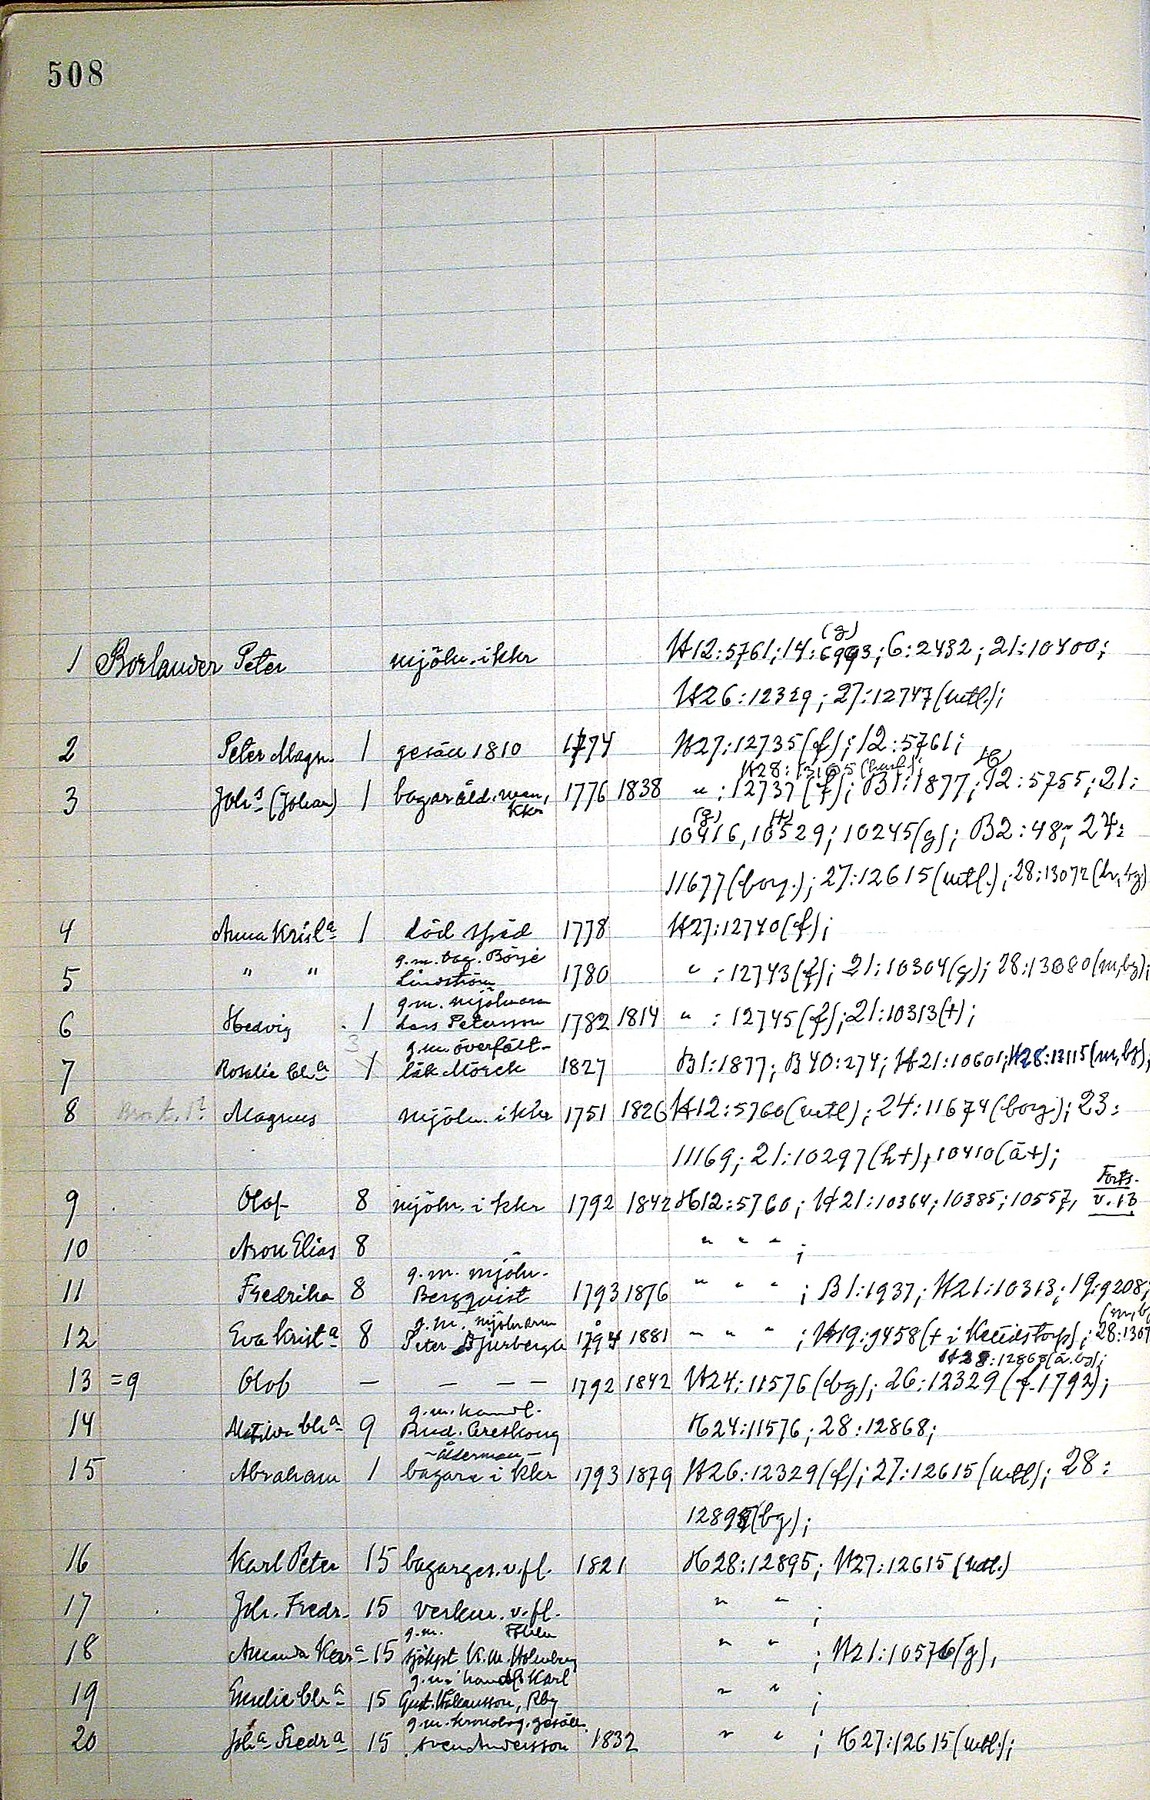 508
1 Borlander Peter mjöln. i kkr H12:5761; 14:6993(g); 6:2432; 21:10400;
H26:12329; 27:12747(mtl.);
2 Peter Magn. 1 gesäll 1810 1774 H27:12735(f); 12:5761;
H28:13105
3 Johs (Johan) 1 bagarålderman, kkr 1776 1838 " : 12737(f); B1:1877; 12:5755; 21:
(g) (+)
10416, 10529; 10245(g); B2:48; 24:
11677(borg.); 27:12615(mtl.); 28:13072
4 Anna Krisa 1 död späd 1778 H27:12740(f);
5 " " g.m. bag. Börje Lindström 1780 " : 12743(f); 21:10304(g); 28:13080(m,bg);
6 Hedvig 1 g.m. mjölnaren Lars Peterson 1782 1814 " : 12745(f); 21:10313(+);
3
7 Rosalie Cha 1 g.m. överfält-läk Mörck 1827 B1:1877; B40:274; H21:10601; H28:13115(m,bg);
8 Magnus mjöln. i kkr 1751 1826 H12:5760(mtl); 24:11674(borg); 23:
11169; 21:10297(h+), 10410(ä+);
9 Olof 8 mjöln. i kkr 1792 1842 H12:5760; H21:10364; 10385; 10557, Forts. v. 13
10 Aron Elias 8 " " " ;
11 Fredrika 8 g.m. mjöln. Bergqvist 1793 1876 " " " ; B1:1937; H21:10313; 19:9208;
12 Eva Krista 8 g.m. mjölnaren Peter Bjurbergh 1794 1881 " " " ; H19:9458
H28:12868(ä.bg);
13 =9 Olof — — — — 1792 1842 H24:11576(bg); 26:12329(f.1792);
14 Cha 9 g.m. handl. H24:11576; 28:12868;
15 Abraham 1 –ålderman– bagare i kkr 1793 1879 H26:12329(f); 27:12615(mtl); 28:
(bg);
16 Karl Peter 15 bagarges. v. fl. 1821 H28:12895; H27:12615(mtl.)
17 Joh. Fredr. 15 verkm. v. fl. " " ;
18 Amanda 15 g.m. sjökpt K.M. Holmberg " " ; H21:10576(g),
19 Emelie Cha 15 g.m. handl. Karl Gust. Håkansson, Rby " " ;
20 Joha Fredra 15 g.m. gesäll. Sven Andersson 1832 " " ; H27:12615(mtl);